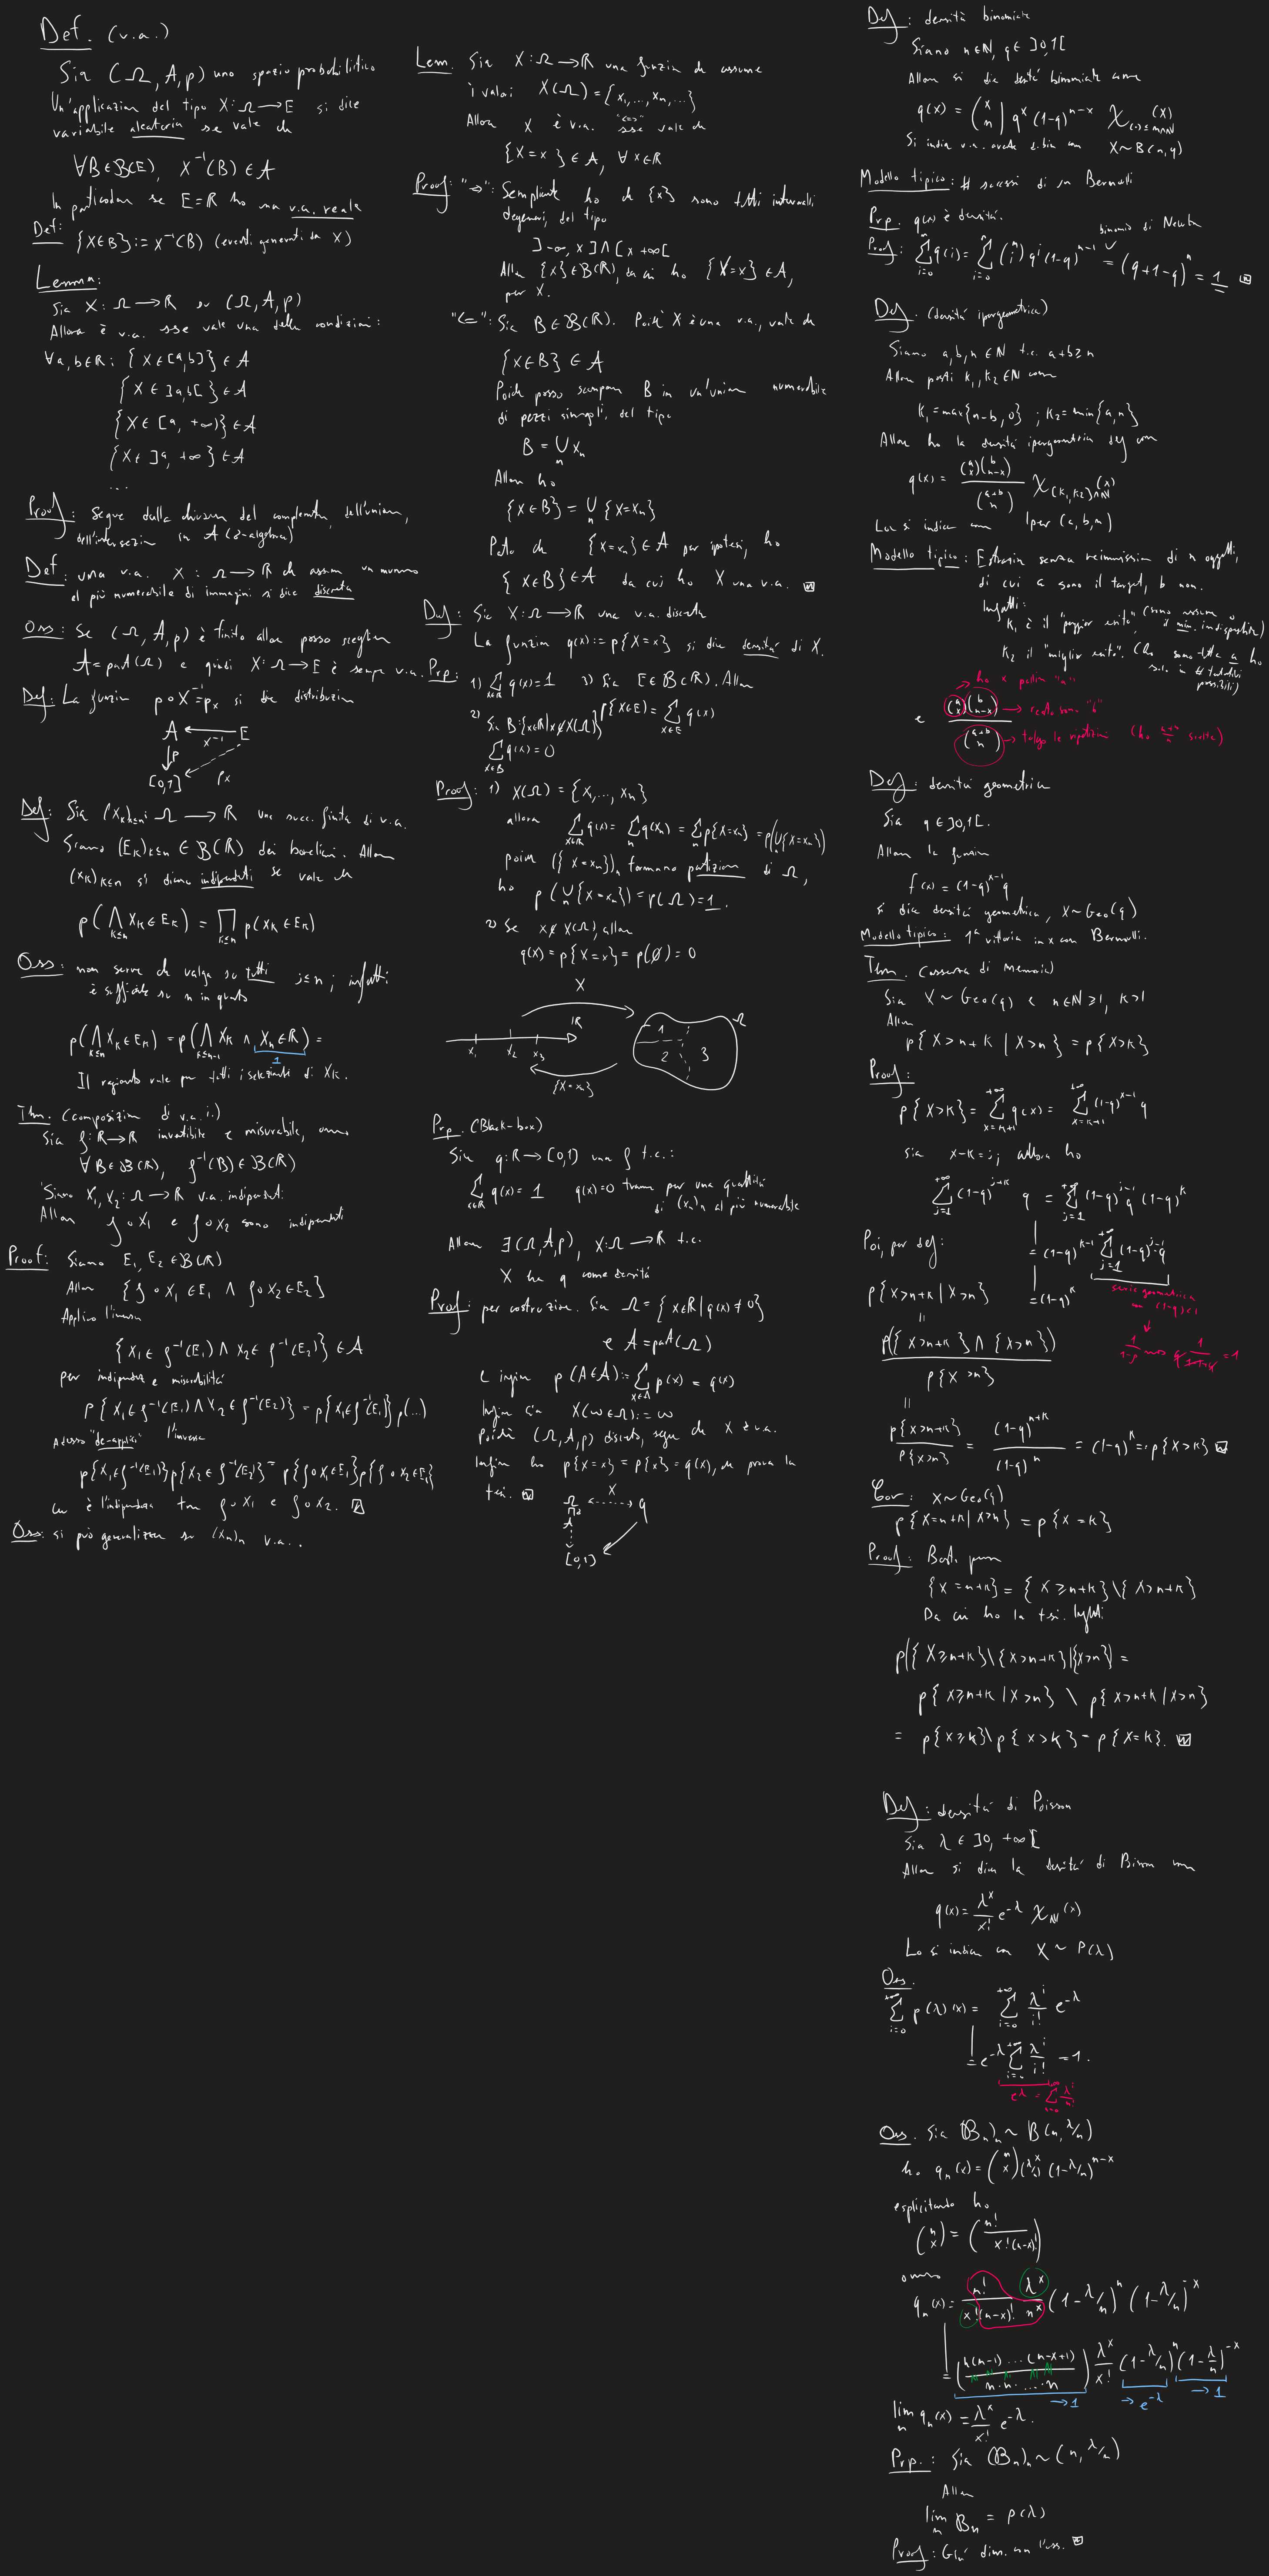 Def. (v.a.)
Sia (Ω, A, p) uno spazio probabilistico
Un'applicazion del tipo X: Ω → E si dice
variabile aleatoria se vale ch
∀B ∈ B(E), X⁻¹(B) ∈ A
In particolar se E = R ho una v.a. reale
Def: {X∈B} := X⁻¹(B) (eventi generati da X)
Lemma:
Sia X: Ω → R su (Ω, A, p)
Allora è v.a. sse vale una delle condizioni:
∀a, b∈R: {X ∈ [a,b]} ∈ A
{X ∈ ]a,b[} ∈ A
{X ∈ [a, +∞)} ∈ A
{X ∈ ]a, +∞} ∈ A
...
Proof: segue dalla chiusura del complementar, dell'union,
dell'intersezion su A (σ-algebra)
Def: una v.a. X: Ω → R ch assum un numero
al più numerabile di immagini si dice discreta
Oss: Se (Ω, A, p) è finito allora posso sceglier
A = part(Ω) e quindi X: Ω → E è sempre v.a.
Def: La funzion p∘X⁻¹ = pₓ si dice distribuzion
A ← E
X⁻¹
↓p
[0,1] pₓ
Def: Sia (Xₖ)ₖ≤ₙ: Ω → R una succ. finita di v.a.
Siano (Eₖ)ₖ≤ₙ ∈ B(R) dei boreliani. Allora
(Xₖ)ₖ≤ₙ si dicono indipendenti se vale ch
p(⋀ₖ≤ₙ Xₖ ∈ Eₖ) = ∏ₖ≤ₙ p(Xₖ ∈ Eₖ)
Oss: non serve ch valga su tutti j≤n; infatti
è sufficiente su n in quanto
p(⋀ₖ≤ₙ Xₖ ∈ Eₖ) = p(⋀ₖ≤ₙ₋₁ Xₖ ∧ Xₙ ∈ R) =
1
Il ragionamento vale per tutti i selezionati di Xₖ.
Thm. (composizion di v.a.i.)
Sia f: R → R invertibile e misurabile, ovvero
∀B ∈ B(R), f⁻¹(B) ∈ B(R)
Siano X₁, X₂: Ω → R v.a. indipendenti
Allora f∘X₁ e f∘X₂ sono indipendenti
Proof: Siano E₁, E₂ ∈ B(R)
Allora {f∘X₁ ∈ E₁ ∧ f∘X₂ ∈ E₂}
Applico l'inversa
{X₁ ∈ f⁻¹(E₁) ∧ X₂ ∈ f⁻¹(E₂)} ∈ A
per indipendenza e misurabilità
p{X₁ ∈ f⁻¹(E₁) ∧ X₂ ∈ f⁻¹(E₂)} = p{X₁ ∈ f⁻¹(E₁)} p(...)
Adesso "de-applico" l'inversa
p{X₁ ∈ f⁻¹(E₁)} p{X₂ ∈ f⁻¹(E₂)} = p{f∘X₁ ∈ E₁} p{f∘X₂ ∈ E₂}
cu è l'indipendenza tra f∘X₁ e f∘X₂.
Oss: si può generalizzar su (Xₙ)ₙ v.a..
Lem. Sia X: Ω → R una funzion ch assume
i valori X(Ω) = {x₁, ..., xₙ, ...}
Allora X è v.a. "<=>" sse vale ch
{X = x} ∈ A, ∀x∈R
Proof: "⇒": Semplicente ho ch {x} sono tutti intervalli
degeneri, del tipo
]-∞, x] ∧ [x, +∞[
Allora {x} ∈ B(R), da cui ho {X = x} ∈ A,
per X.
"<=": Sia B ∈ B(R). Poiché X è una v.a., vale ch
{X∈B} ∈ A
Poiché posso scomporre B in un'union numerabile
di pezzi singoli, del tipo
B = ⋃ₙ xₙ
Allora ho
{X∈B} = ⋃ₙ {X = xₙ}
Dato ch {X = xₙ} ∈ A per ipotesi, ho
{X∈B} ∈ A da cui ho X una v.a.
Def: Sia X: Ω → R una v.a. discreta
La funzion q(x) := p{X = x} si dice densità di X.
Prp: 1) ∑ₓ∈R q(x) = 1 3) Sia E ∈ B(R). Allora
p{X∈E} = ∑ₓ∈E q(x)
2) Sia B:{x∈R | x∉X(Ω)}
∑ₓ∈B q(x) = 0
Proof: 1) X(Ω) = {x, ..., xₙ}
allora ∑ₓ∈R q(x) = ∑ₙ q(xₙ) = ∑ₙ p{X = xₙ} = p(⋃{X = xₙ})
poiché ({X = xₙ})ₙ formano partizion di Ω,
ho p(⋃ₙ {X = xₙ}) = p(Ω) = 1.
2) Se x∉X(Ω), allora
q(x) = p{X = x} = p(∅) = 0
X
R
Ω
x₁ x₂ x₃
1 2 3
{X = xₙ}
Prp. (Black-box)
Sia q: R → [0,1] una f t.c.:
∑ₓ∈R q(x) = 1 q(x) = 0 tranne per una quantità
di (xₙ)ₙ al più numerabile
Allora ∃(Ω, A, p), X: Ω → R t.c.
X ha q come densità
Proof: per costruzione. Sia Ω = {x∈R | q(x) ≠ 0}
e A = part(Ω)
e infine p(A∈A) := ∑ₓ∈A p(x) = q(x)
Infine sia X(ω∈Ω) := ω
Poiché (Ω, A, p) discreto, segue ch X è v.a.
Infine ho p{X = x} = p{x} = q(x), ch prova la
tesi.
Ω X q
A
[0,1]
Def: densità binomiale
Siano n∈N, q∈ ]0,1[
Allora si dice densità binomiale come
q(x) = (x n) qˣ (1-q)ⁿ⁻ˣ χ₍·₎≤ₙ∧N (x)
Si indica v.a. avente d.bin con X ~ B(n,q)
Modello tipico: # successi di un Bernoulli
Prp. q(x) è densità.
binomio di Newton
Proof: ∑ᵢ₌₀ⁿ q(i) = ∑ᵢ₌₀ⁿ (n i) qⁱ (1-q)ⁿ⁻ⁱ = (q+1-q)ⁿ = 1
Def. (densità ipergeometrica)
Siano a, b, n ∈ N t.c. a+b ≥ n
Allora posti k₁, k₂ ∈ N come
k₁ = max{n-b, 0}; k₂ = min{a, n}
Allora ho la densità ipergeometrica def com
q(x) = (a x)(b n-x) / (a+b n) χ[k₁,k₂]∧N (x)
La si indica come Iper(a, b, n)
Modello tipico: Estrazion senza reimmission di n oggetti,
di cui a sono il target, b non.
Infatti:
k₁ è il "peggior esito" (sono assume o il min. indispensabile)
k₂ il "miglior esito". (ho sono tutte a ho
solo n # tentativi possibili)
ho x pallin "a"
e (a x)(b n-x) → resto sono "b"
(a+b n) → tolgo le ripetizioni (ho a+b n scelte)
Def: densità geometrica
Sia q∈]0,1[.
Allora la funzion
f(x) = (1-q)ˣ⁻¹ q
si dice densità geometrica, X ~ Geo(q)
Modello tipico: 1ª vittoria in x con Bernoulli.
Thm. (assenza di memoria)
Sia X ~ Geo(q) e n∈N ≥ 1, k>1
Allora
p{X > n+k | X > n} = p{X > k}
Proof:
p{X > k} = ∑ₓ₌ₖ₊₁⁺∞ q(x) = ∑ₓ₌ₖ₊₁⁺∞ (1-q)ˣ⁻¹ q
sia x-k = j; allora ho
∑ⱼ₌₁⁺∞ (1-q)ʲ⁺ᵏ q = ∑ⱼ₌₁⁺∞ (1-q)ʲ⁻¹ q (1-q)ᵏ
= (1-q)ᵏ⁻¹ ∑ⱼ₌₁⁺∞ (1-q)ʲ⁻¹ q
= (1-q)ᵏ
serie geometrica
con (1-q)<1
1/(1-p) → q 1/(1-1+q) = 1
Poi, per def:
p{X > n+k | X > n}
=
p({X > n+k} ∧ {X > n}) / p{X > n}
=
p{X > n+k} / p{X > n} = (1-q)ⁿ⁺ᵏ / (1-q)ⁿ = (1-q)ᵏ =: p{X > k}
Cor: X ~ Geo(q)
p{X = n+k | X > n} = p{X = k}
Proof: Basta porre
{X = n+k} = {X ≥ n+k} \ {X > n+k}
Da cui ho la tesi. Infatti
p({X ≥ n+k} \ {X > n+k} | {X > n}) =
p{X ≥ n+k | X > n} \ p{X > n+k | X > n}
= p{X ≥ k} \ p{X > k} = p{X = k}.
Def: densità di Poisson
Sia λ ∈ ]0, +∞[
Allora si dice la densità di Poisson com
q(x) = λˣ/x! e^-λ χN (x)
Lo si indica con X ~ P(λ)
Oss.
∑ᵢ₌₀⁺∞ p(λ)(x) = ∑ᵢ₌₀⁺∞ λⁱ/i! e^-λ
= e^-λ ∑ᵢ₌₀⁺∞ λⁱ/i! = 1.
e^λ = ∑ₙ₌₀^∞ λⁱ/n!
Oss. Sia (Bₙ)ₙ ~ B(n, λ/n)
ho qₙ(x) = (n x)(λ/n)ˣ (1-λ/n)ⁿ⁻ˣ
esplicitando ho
(n x) = (n! / x!(n-x)!)
ovvero
qₙ(x) = n!/(x!(n-x)!) λˣ/nˣ (1-λ/n)ⁿ (1-λ/n)⁻ˣ
= (n(n-1)...(n-x+1) / n·n·...·n) λˣ/x! (1-λ/n)ⁿ (1-λ/n)⁻ˣ
→1 → e^-λ →1
limₙ qₙ(x) = λˣ/x! e^-λ.
Prp.: Sia (Bₙ)ₙ ~ (n, λ/n)
Allora
limₙ Bₙ = P(λ)
Proof: Già dim. con l'oss.